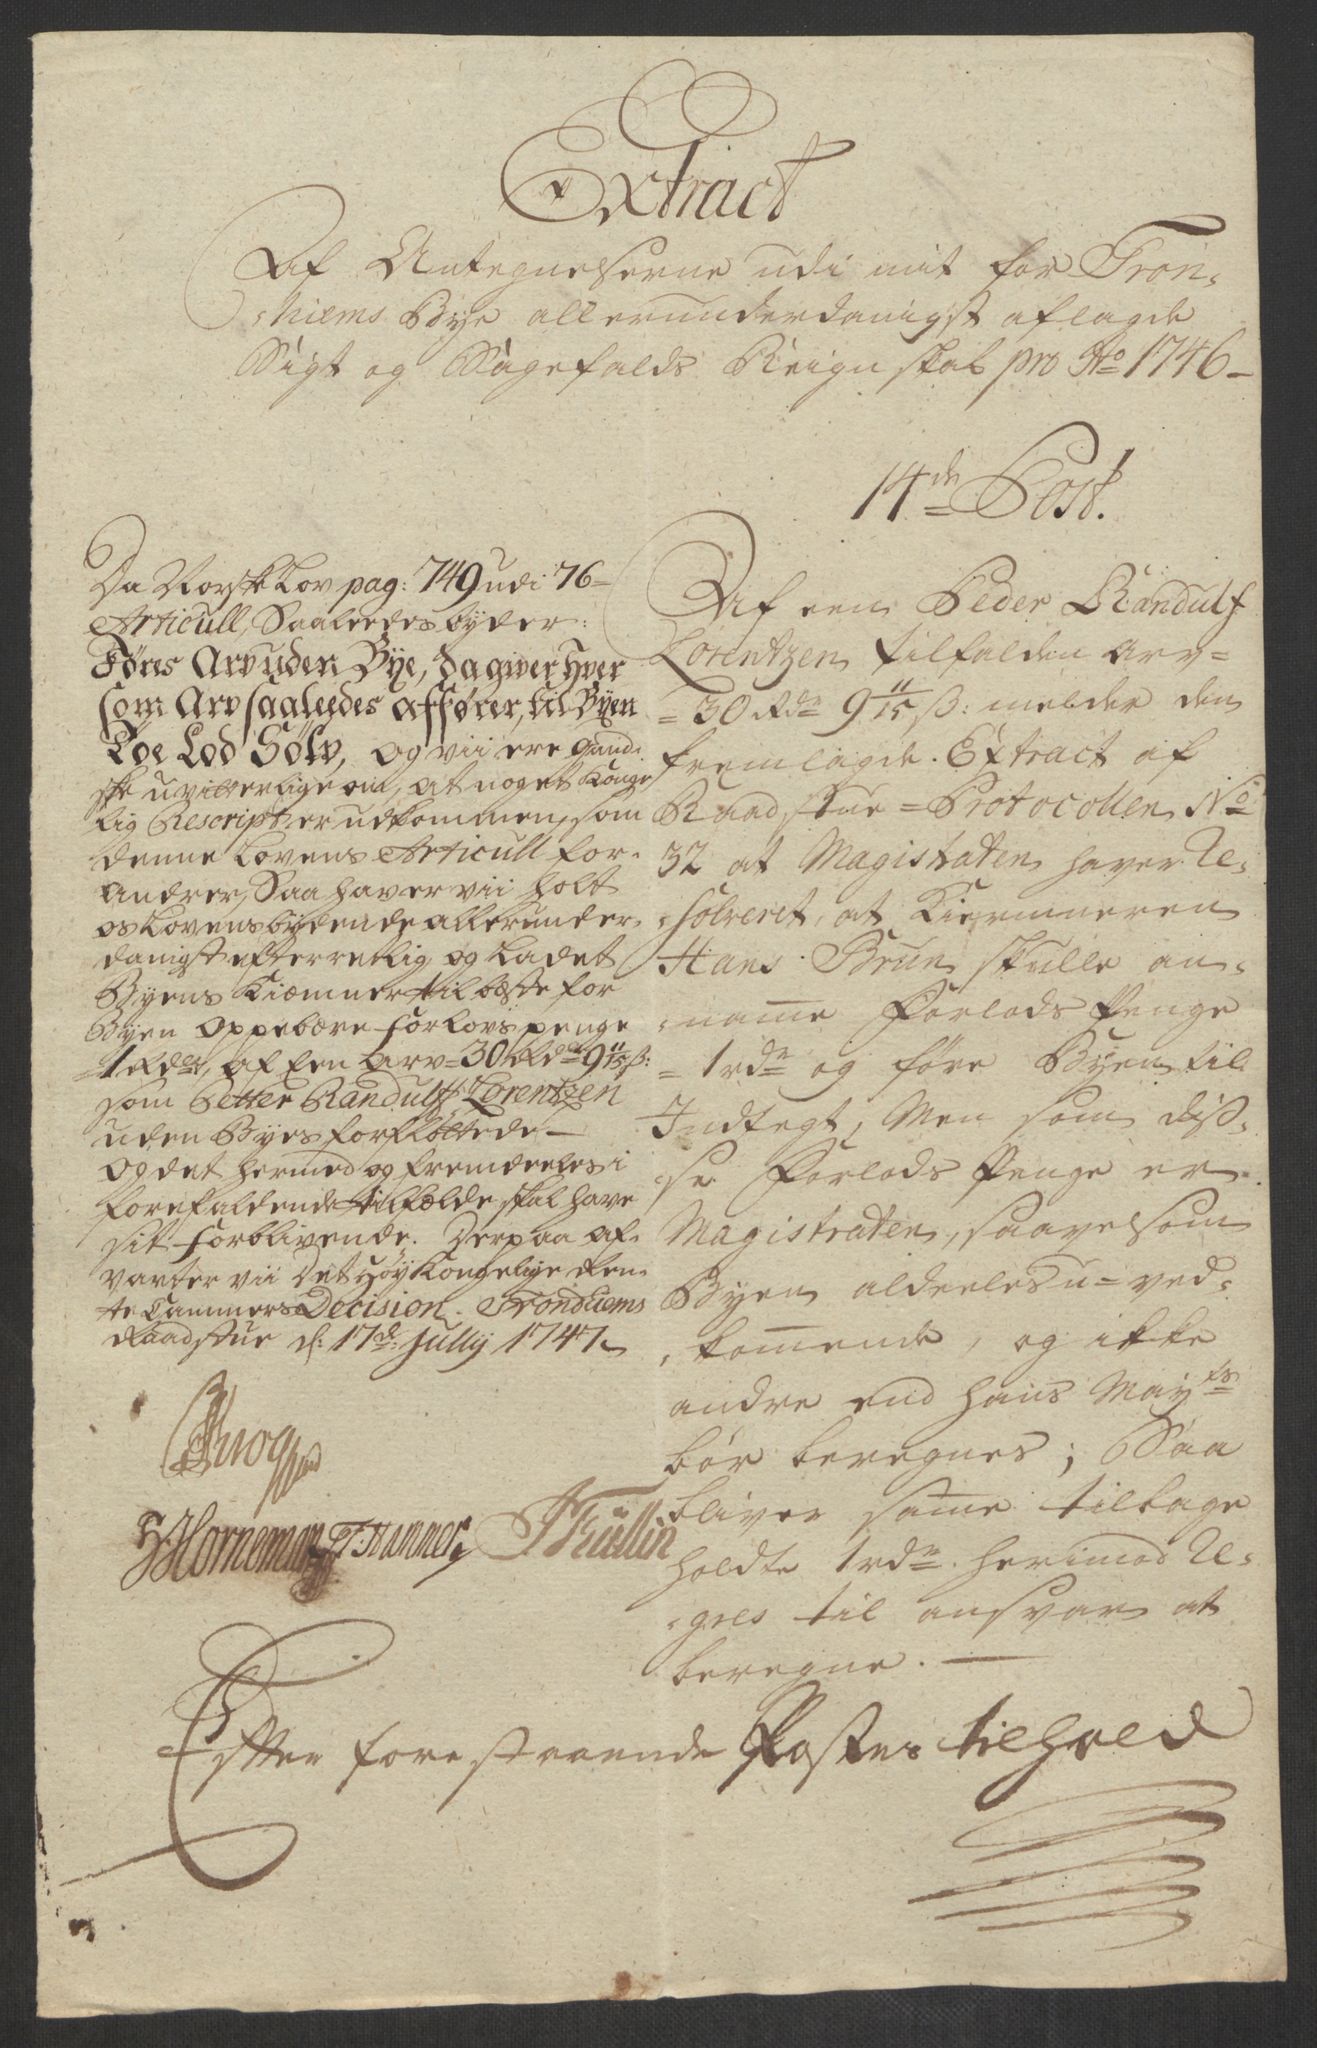 Extract
Af Antegnelserne udi mit for Tron-
-hiems Bye allerunderdanigst aflagde
Sigt og Sagefalds Reignskab pro Ao 1746 –
14de Post.
Da Norske Lov pag: 749 udi 76 –
Articull, Saaleedes byder:
Føres Arv uden Bye, da giver Hver
som Arv saaleedes afføres, til Byen
Toe Lod Sølv, og vii ere gand-
ske uvitterlige om, at noget Konge
lig Rescript er udkommen, som
denne Lovens Articull for-
andrer, Saa haver vii holt
os Lovens bydende allerunder-
danigst efterretlig og Ladet
Byens Kiæmner til bæste for
Byen Oppebære forlovs penge
1 Rdr, af Een Arv 30 Rdr 9 11/15 ß:
som Petter Randulf Lorentzen
uden Byes forfløttede –
Og det hermed og fremdeeles i
forefaldende tilfælde skal have
sit forblivende. Derpaa af-
varter vii Det Høy Kongelige Ren-
te Cammers Decision. Trondhiems
Raadstue d: 17de Jullij 1747
Krog
H Horneman T. Hammer J Küllin
Af een Peder Randulf
Lorentzen tilfalden Arv
= 30 Rdr 9 11/15 ß: melder den
fremlagde Extract af
Raadstue = Protocollen No
32 at Magistraten haver Re-
-solveret, at Kiemneren
Hans Brun skulle an-
-name Forlods Penge
= 1 rdr og føre Byen til
Indtegt, Men som diß-
se Forlods Penge er
Magistraten, saavelsom
Byen aldeeles u-ved-
-kommende, og ikke
andre end hans Mayts
bør beregnes; Saa
bliver same tilbage
holdte 1 rdr herimod Re-
-gres til ansvar at
beregne. –
Efter forestaaende Postes tilhold